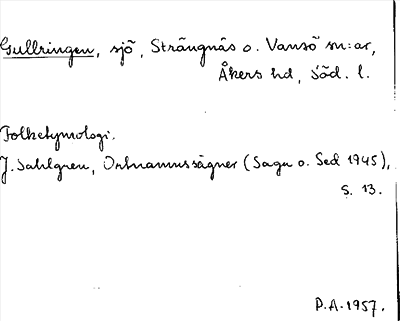 Gullringen, sjö, Strängnäs o. Vansö sn:ar,
Åkers hd, Söd. l.
Folketymologi.
J. Sahlgren, Ortnamnssägner (Saga o. Sed 1945),
s. 13.
P.A. 1957.